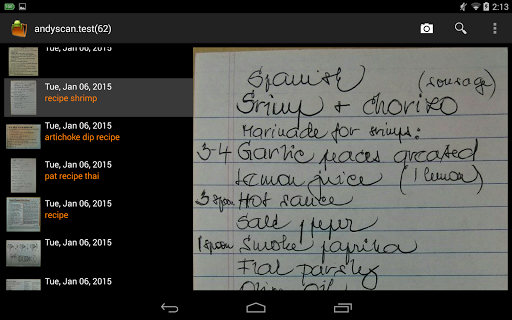 2:13
andyscan.test(62)
Tue, Jan 06, 2015
Tue, Jan 06, 2015
recipe shrimp
Tue, Jan 06, 2015
artichoke dip recipe
Tue, Jan 06, 2015
pat recipe thai
Tue, Jan 06, 2015
recipe
Tue, Jan 06, 2015
Tue, Jan 06, 2015
Spanish (sousage)
Srimp & Chorizo
Marinade for srimps:
3-4 Garlic peaces greated
Lemon juice (1 lemon)
3 spoon Hot sauce
Salt peper
1 spoon Smoke paprika
Flat parsley
Olive oil